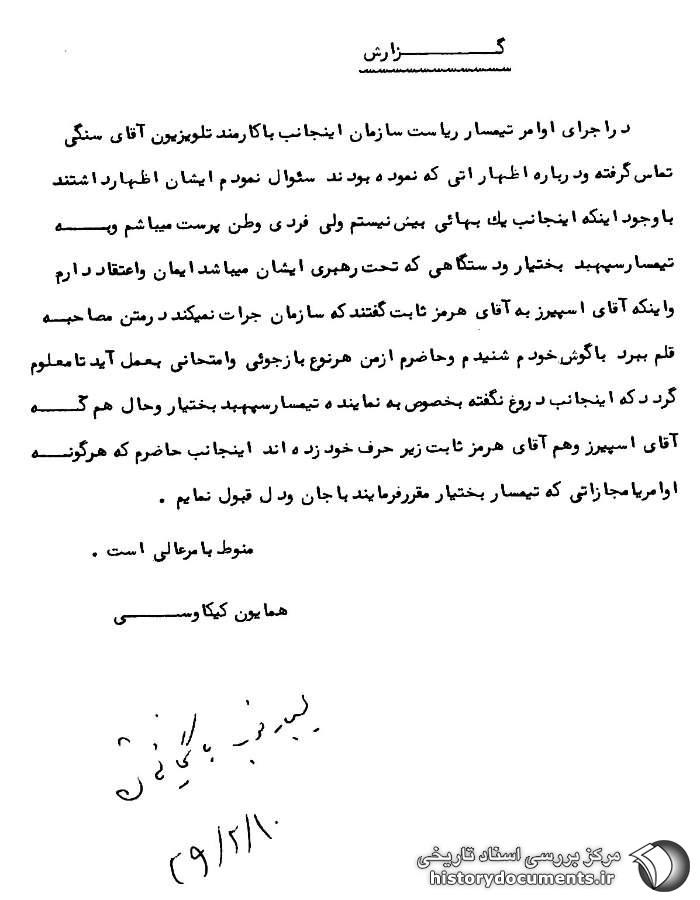 گزارش
در اجرای اوامر تیمسار ریاست سازمان اینجانب با کارمند تلویزیون آقای سنگی
تماس گرفته و درباره اظهاراتی که نموده بودند سئوال نمودم ایشان اظهار داشتند
با وجود اینکه اینجانب یك بهائی بیش نیستم ولی فردی وطن پرست میباشم و به
تیمسار سپهبد بختیار و دستگاهی که تحت رهبری ایشان میباشد ایمان و اعتقاد دارم
و اینکه آقای اسپیرز به آقای هرمز ثابت گفتند که سازمان جرات نمیکند در متن مصاحبه
قلم ببرد با گوش خودم شنیدم و حاضرم از من هر نوع بازجوئی و امتحانی بعمل آید تا معلوم
گردد که اینجانب دروغ نگفته بخصوص به نماینده تیمسار سپهبد بختیار و حال هم که
آقای اسپیرز و هم آقای هرمز ثابت زیر حرف خود زده اند اینجانب حاضرم که هرگونه
اوامر یا مجازاتی که تیمسار بختیار مقرر فرمایند با جان و دل قبول نمایم .
منوط بامر عالی است .
همایون کیکاوسی
۳۹/۲/۱۰
مرکز بررسی اسناد تاریخی
historydocuments.ir